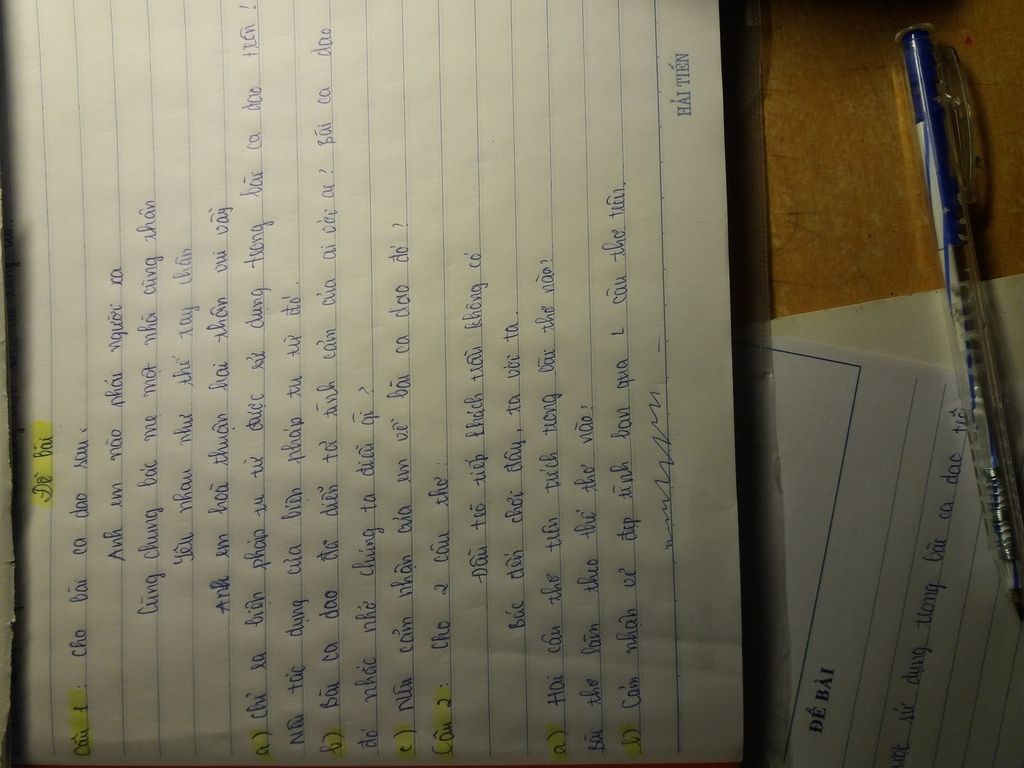 Đề bài
Câu 1: Cho bài ca dao sau:
Anh em nào phải người xa
Cùng chung bác mẹ một nhà cùng thân
Yêu nhau như thể tay chân
Anh em hoà thuận hai thân vui vầy
a) Chỉ ra biện pháp tu từ được sử dụng trong bài ca dao trên!
Nêu tác dụng của biện pháp tu từ đó.
b) Bài ca dao đó diễn tả tình cảm của ai với ai? Bài ca dao
đó nhắc nhở chúng ta điều gì?
c) Nêu cảm nhận của em về bài ca dao đó?
Câu 2: Cho 2 câu thơ:
Đầu trò tiếp khách trầu không có
Bác đến chơi đây, ta với ta.
a) Hai câu thơ trên trích trong bài thơ nào?
Bài thơ làm theo thể thơ nào?
b) Cảm nhận vẻ đẹp tình bạn qua 2 câu thơ trên.
HẢI TIẾN
ĐỀ BÀI
sử dụng trong bài ca dao